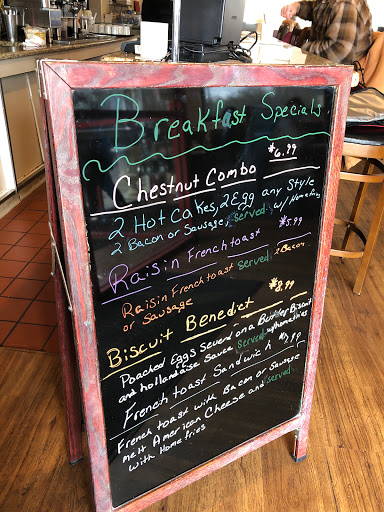 Breakfast Specials
Chestnut Combo $6.99
2 Hot Cakes, 2 Egg any Style
2 Bacon or Sausage, served w/ Homefries
Raisin French toast $5.99
Raisin French toast served 2 Bacon
or Sausage
Biscuit Benedict $8.99
Poached Eggs Severd on a Butter Biscuit
and hollandaise Sauce Served w/homefries
French toast Sandwich
French toast with Bacon or Sausage
melt American Cheese and served
with Home fries